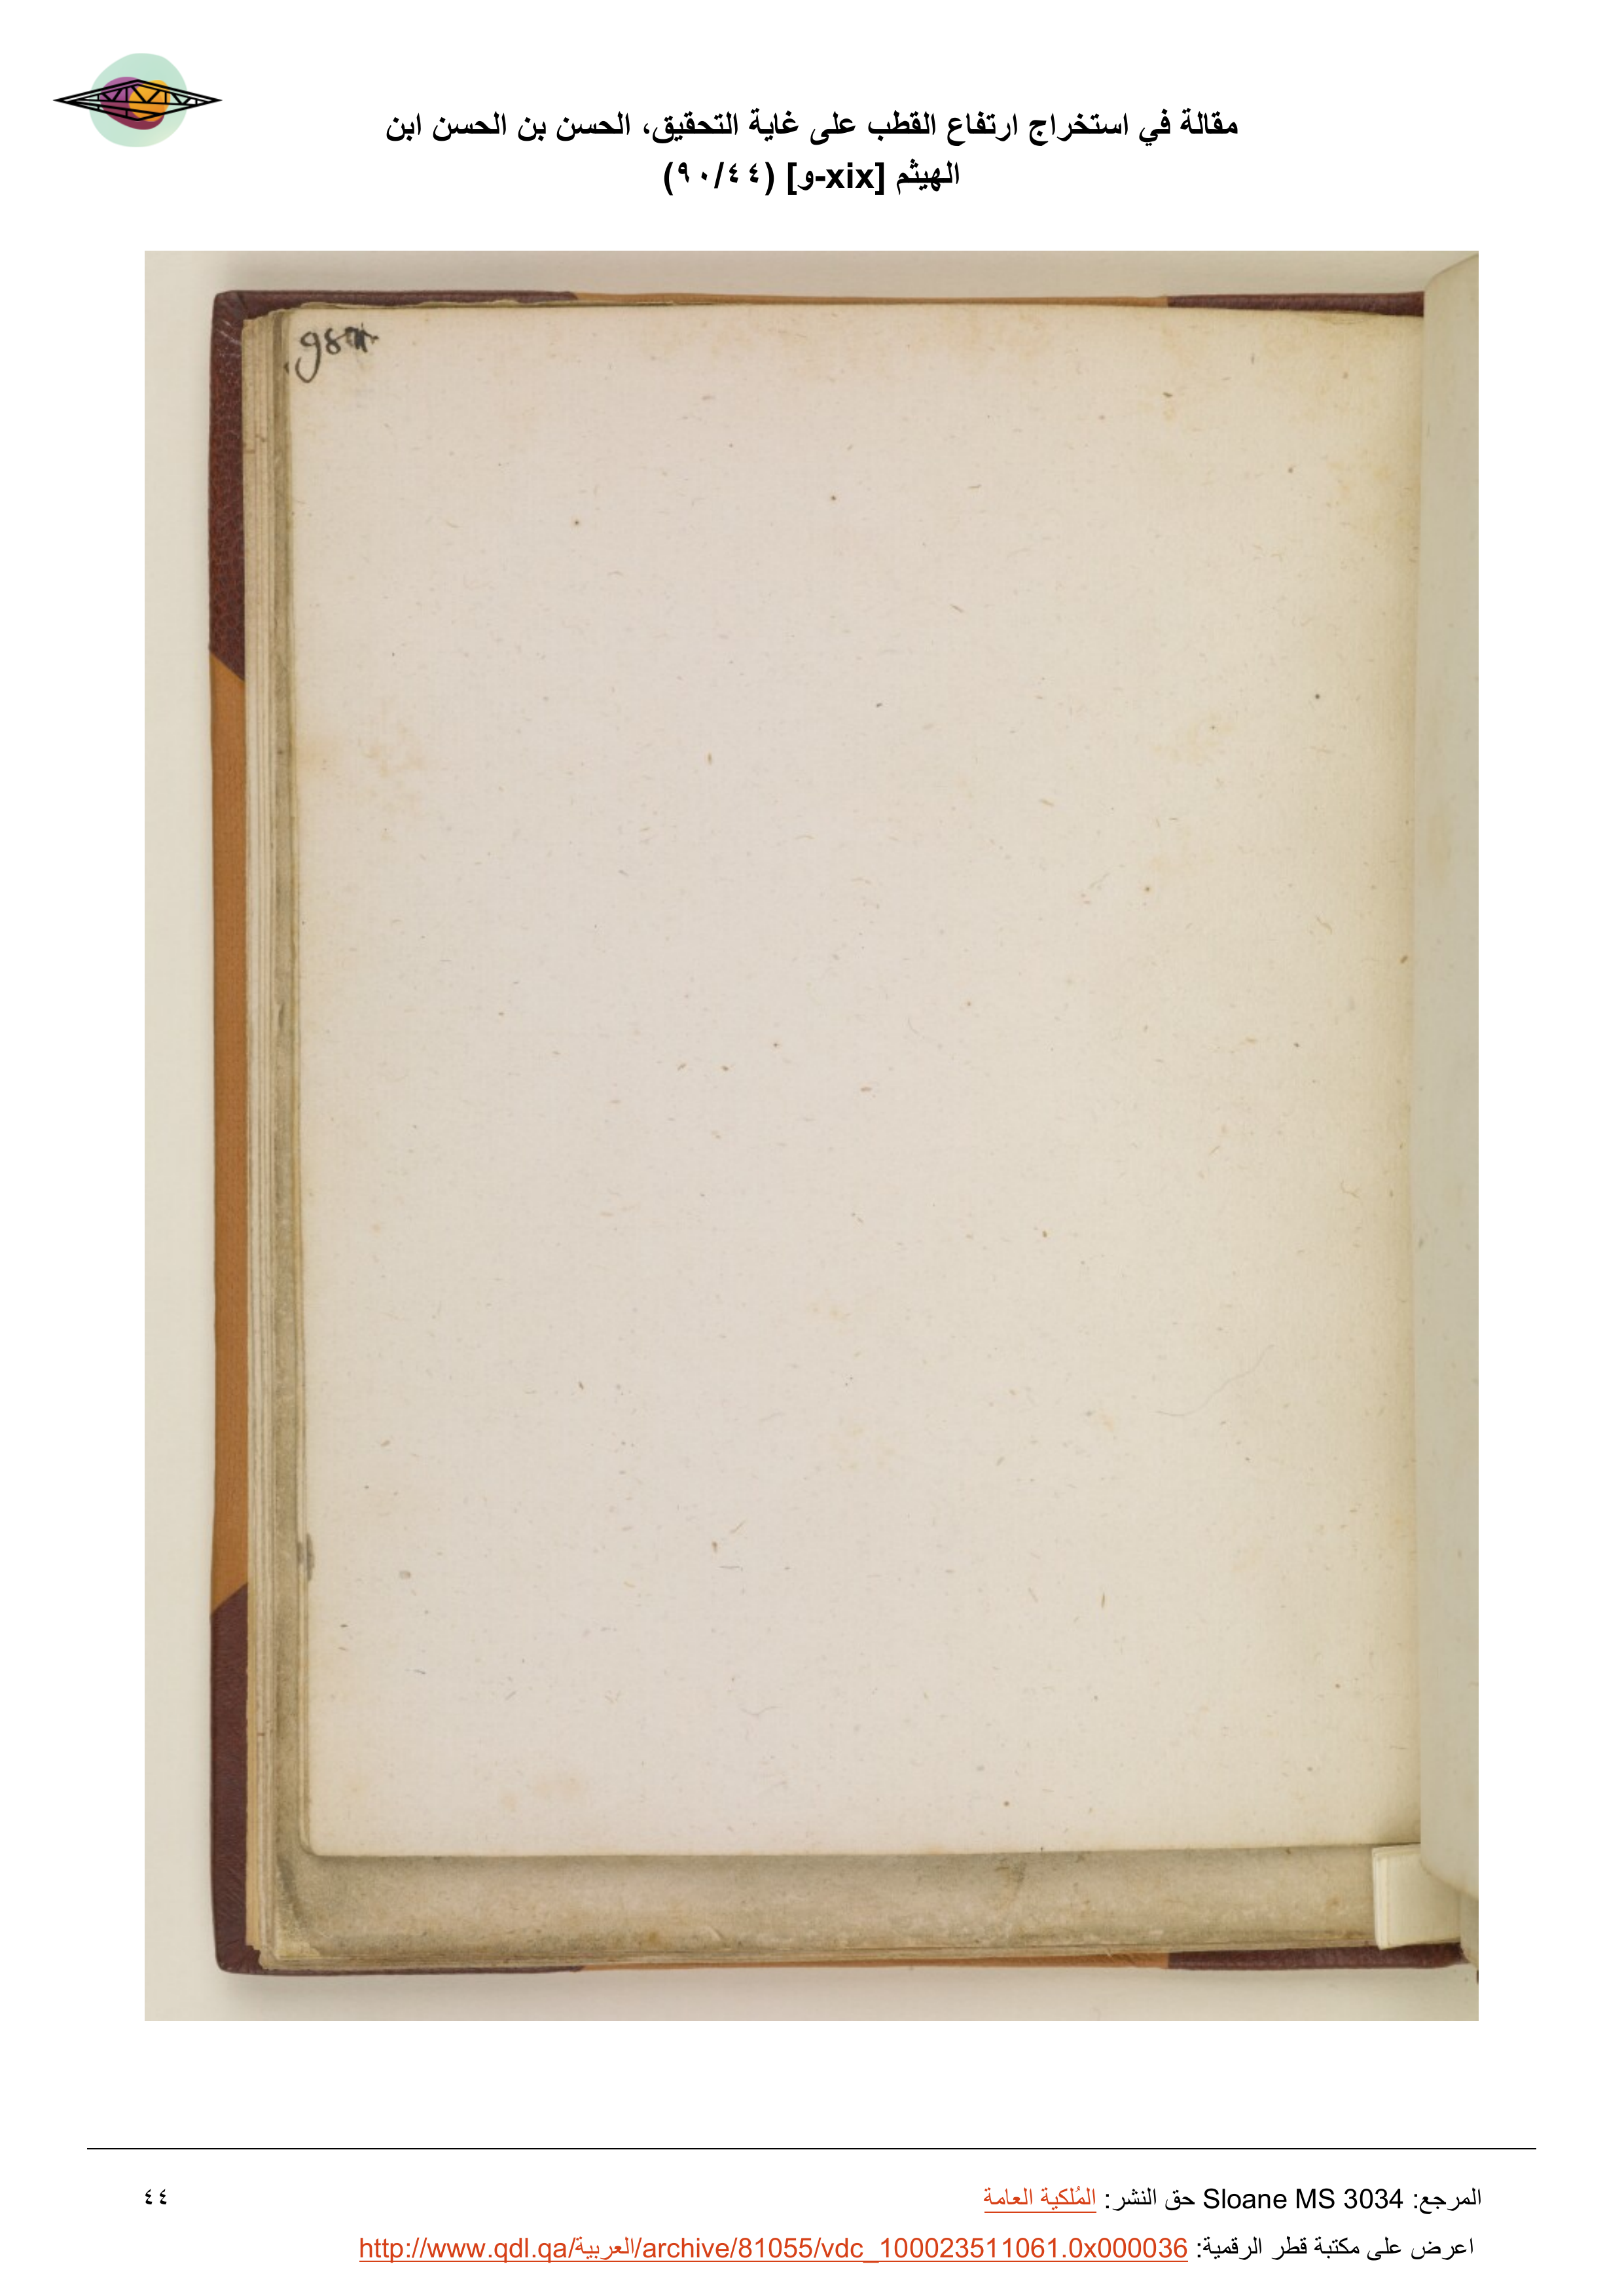 مقالة في استخراج ارتفاع القطب على غاية التحقيق، الحسن بن الحسن ابن
الهيثم [xix-و] (٩٠/٤٤)
المرجع: Sloane MS 3034 حق النشر: المُلكية العامة
٤٤
اعرض على مكتبة قطر الرقمية: http://www.qdl.qa/العربية/archive/81055/vdc_100023511061.0x000036